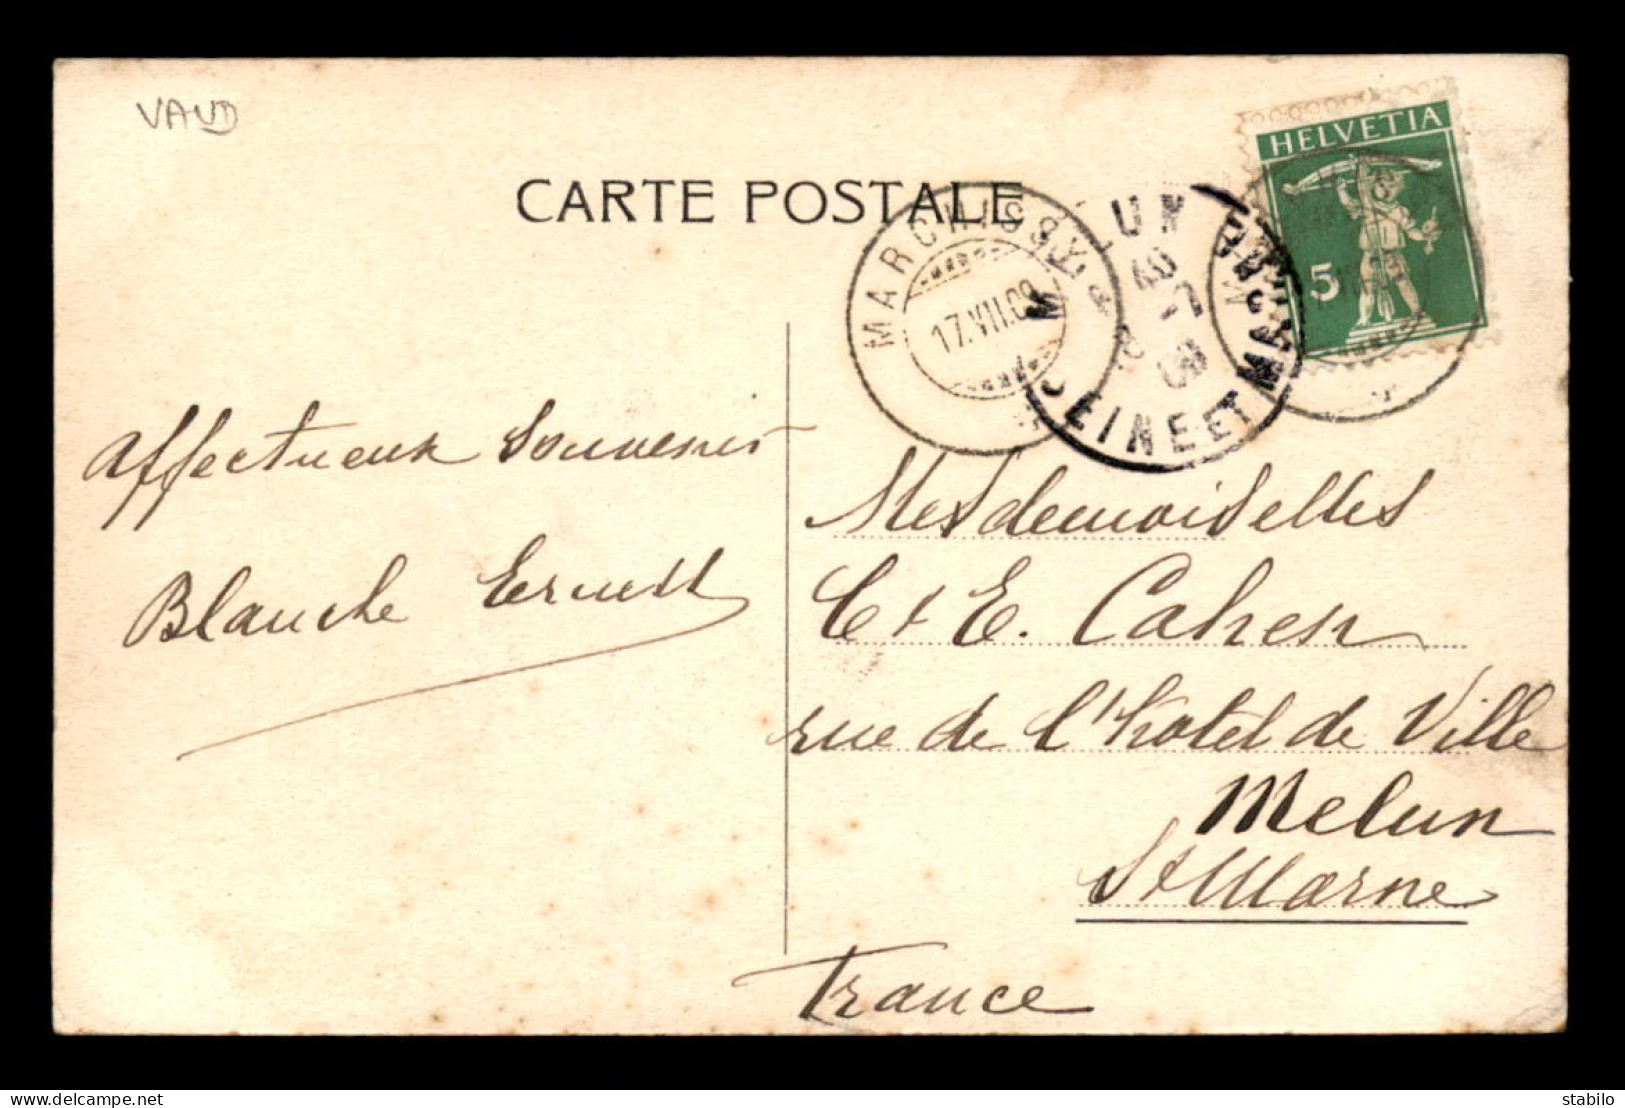 VAUD
CARTE POSTALE
HELVETIA
5
MARCHISSY
17.VII.09
SEINE ET MARNE
Affectueux Souvenirs
Blanche Ernest
Mesdemoiselles
C & E. Cahen
rue de l'hôtel de Ville
Melun
S & Marne
France
delcampe.net
stabilo